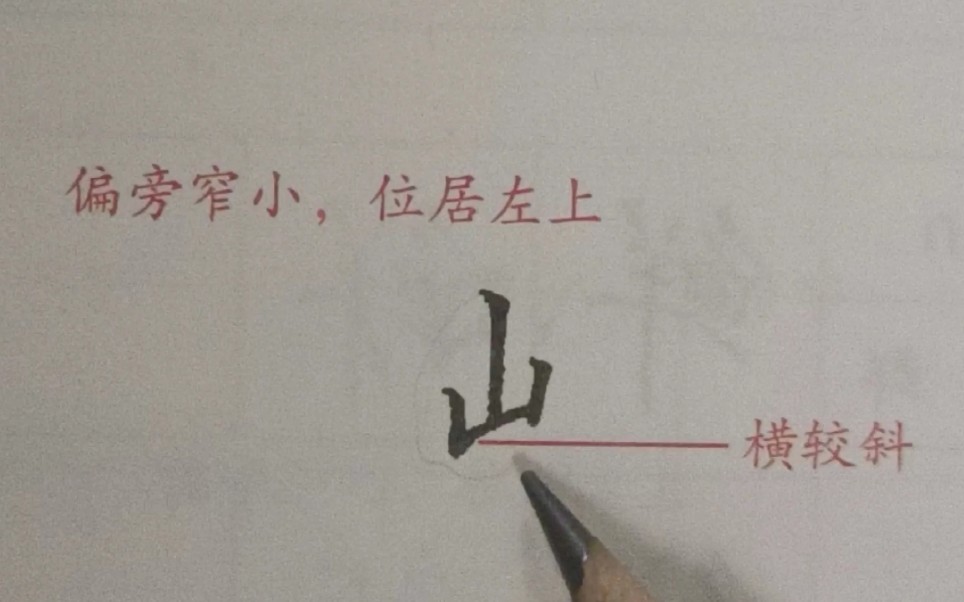 偏旁窄小，位居左上
山
横较斜